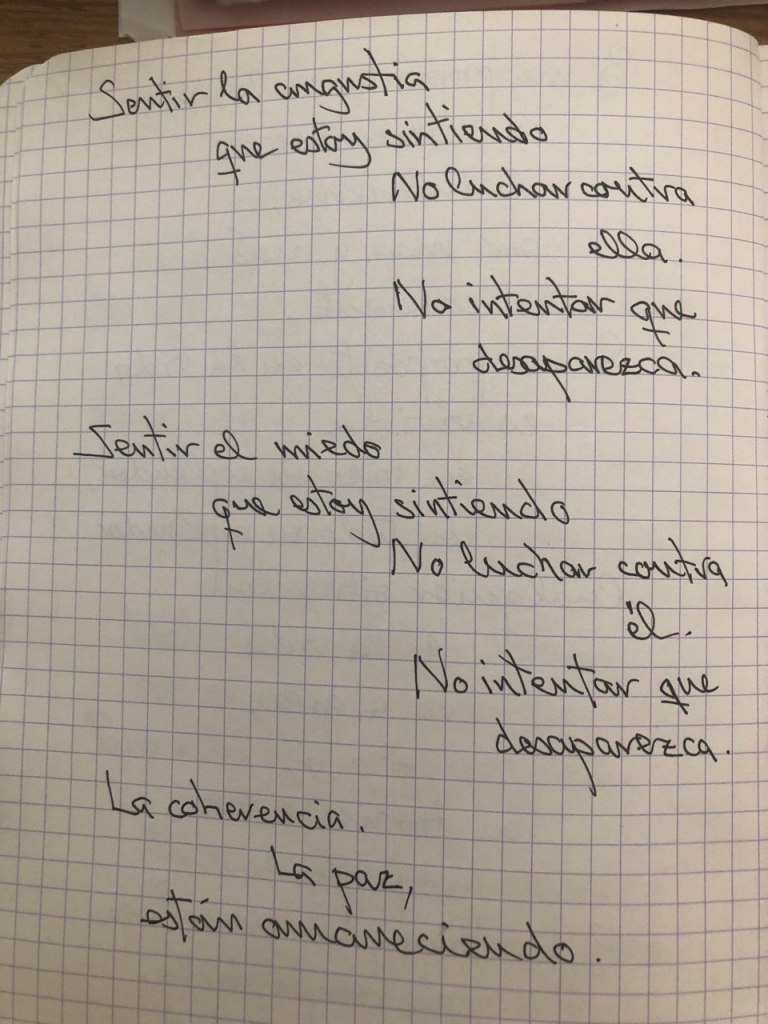 Sentir la angustia
que estoy sintiendo
No luchar contra
ella.
No intentar que
desaparezca.
Sentir el miedo
que estoy sintiendo
No luchar contra
él.
No intentar que
desaparezca.
La coherencia.
La paz,
están amaneciendo.